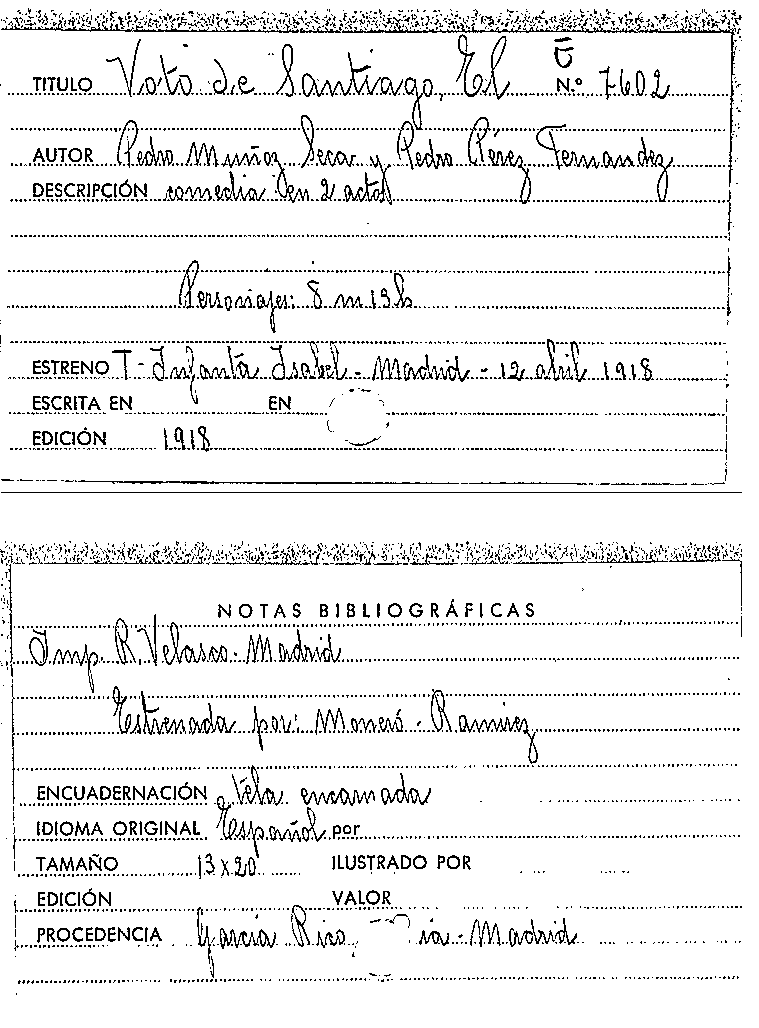 TITULO Voto de Santiago, El N.º 7602
AUTOR Pedro Muñoz Seca y Pedro Pérez Fernandez
DESCRIPCIÓN comedia en 2 actos
Personajes: 8 m 13 h
ESTRENO T- Infanta Isabel - Madrid - 12 abril 1918
ESCRITA EN EN
EDICIÓN 1918
NOTAS BIBLIOGRÁFICAS
Imp. R. Velasco - Madrid
Estrenada por: - Ramirez
ENCUADERNACIÓN tela encarnada
IDIOMA ORIGINAL Español por
TAMAÑO 13 x 20 ILUSTRADO POR
EDICIÓN VALOR
PROCEDENCIA García Rico, - Madrid